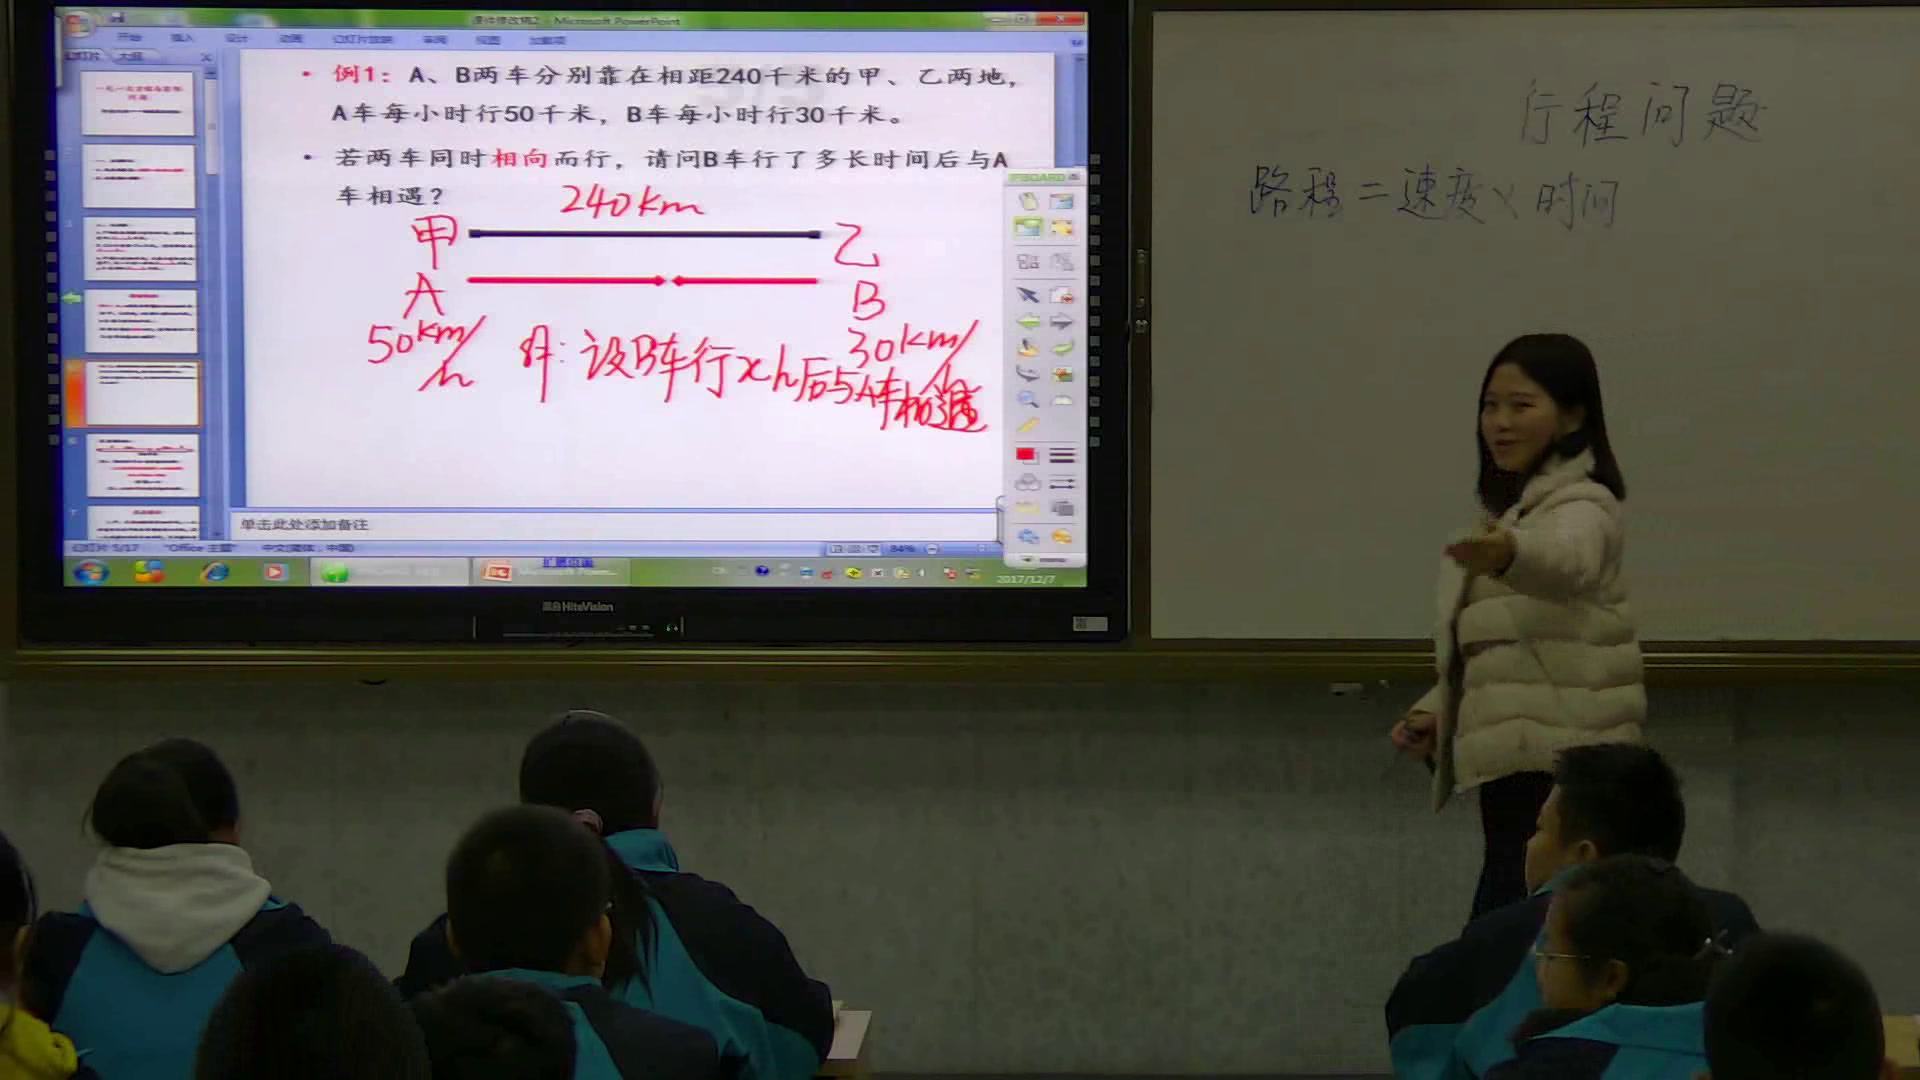 课件修改稿2 - Microsoft PowerPoint
开始 插入 设计 动画 幻灯片放映 审阅 视图 加载项
幻灯片 大纲
例1：A、B两车分别靠在相距240千米的甲、乙两地，
A车每小时行50千米，B车每小时行30千米。
若两车同时相向而行，请问B车行了多长时间后与A
车相遇？
240km
甲 乙
A B
50km/h 30km/h
设B车行xh后与A车相遇
单击此处添加备注
幻灯片 5/17 "Office 主题" 中文(简体，中国) 84%
扩展页面
Microsoft Power...
2017/12/7
HiteVision
行程问题
路程=速度×时间